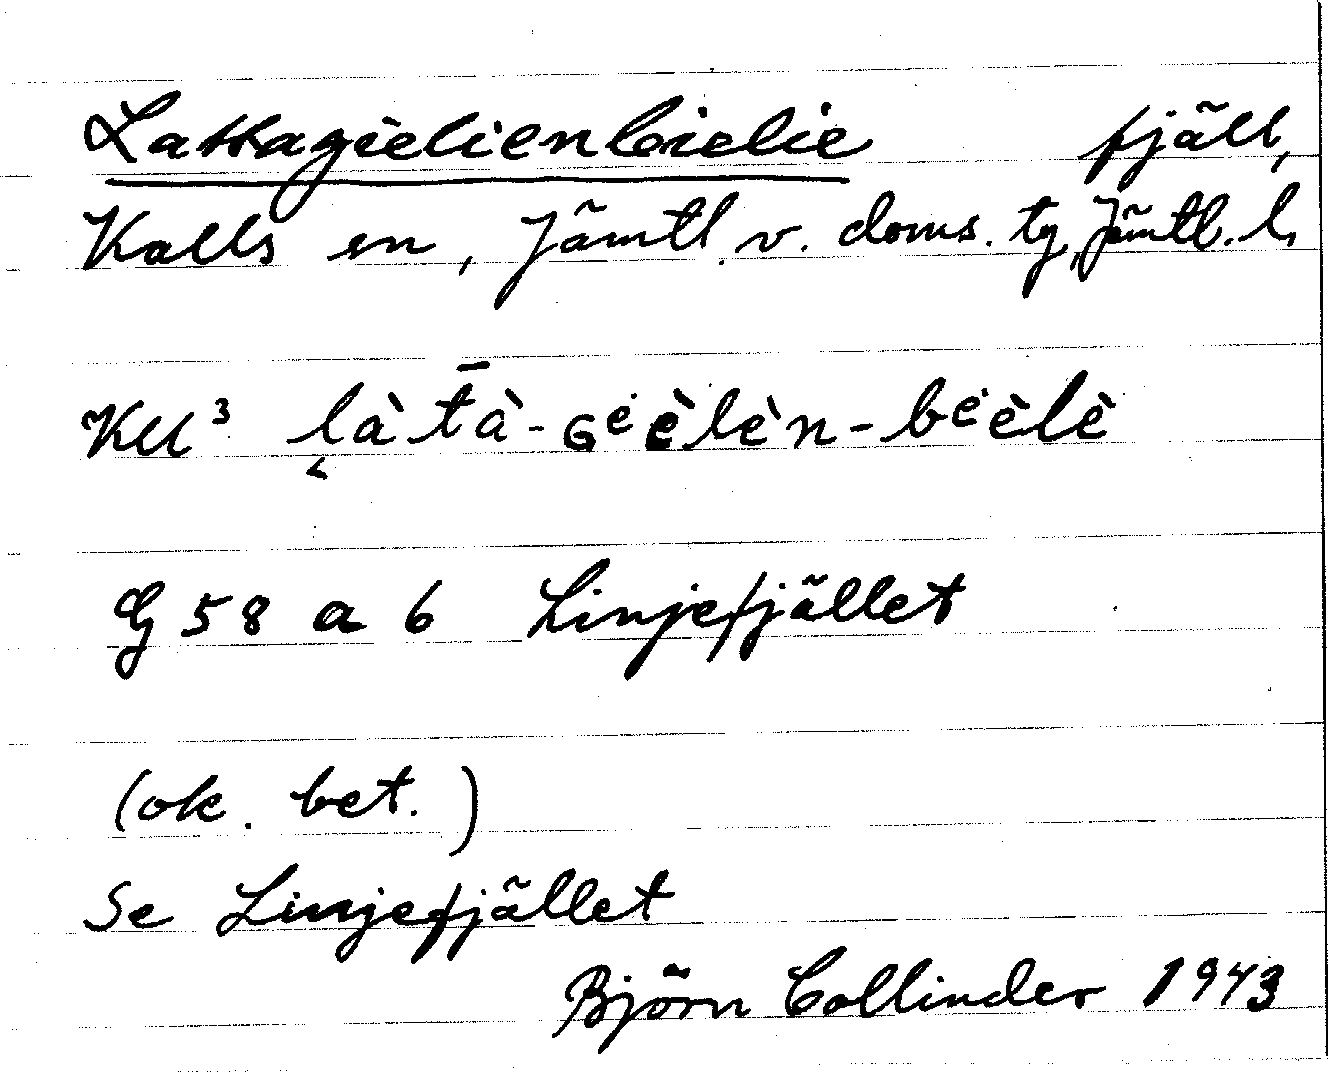 Lattagielienbielie fjäll,
Kalls sn, Jämtl. v. doms. tg, Jämtl. l.
KU³ làt̄à-ɢėèlèn-bėèlè
G 58 a 6 Linjefjället
(ok. bet.)
Se Linjefjället
Björn Collinder 1943